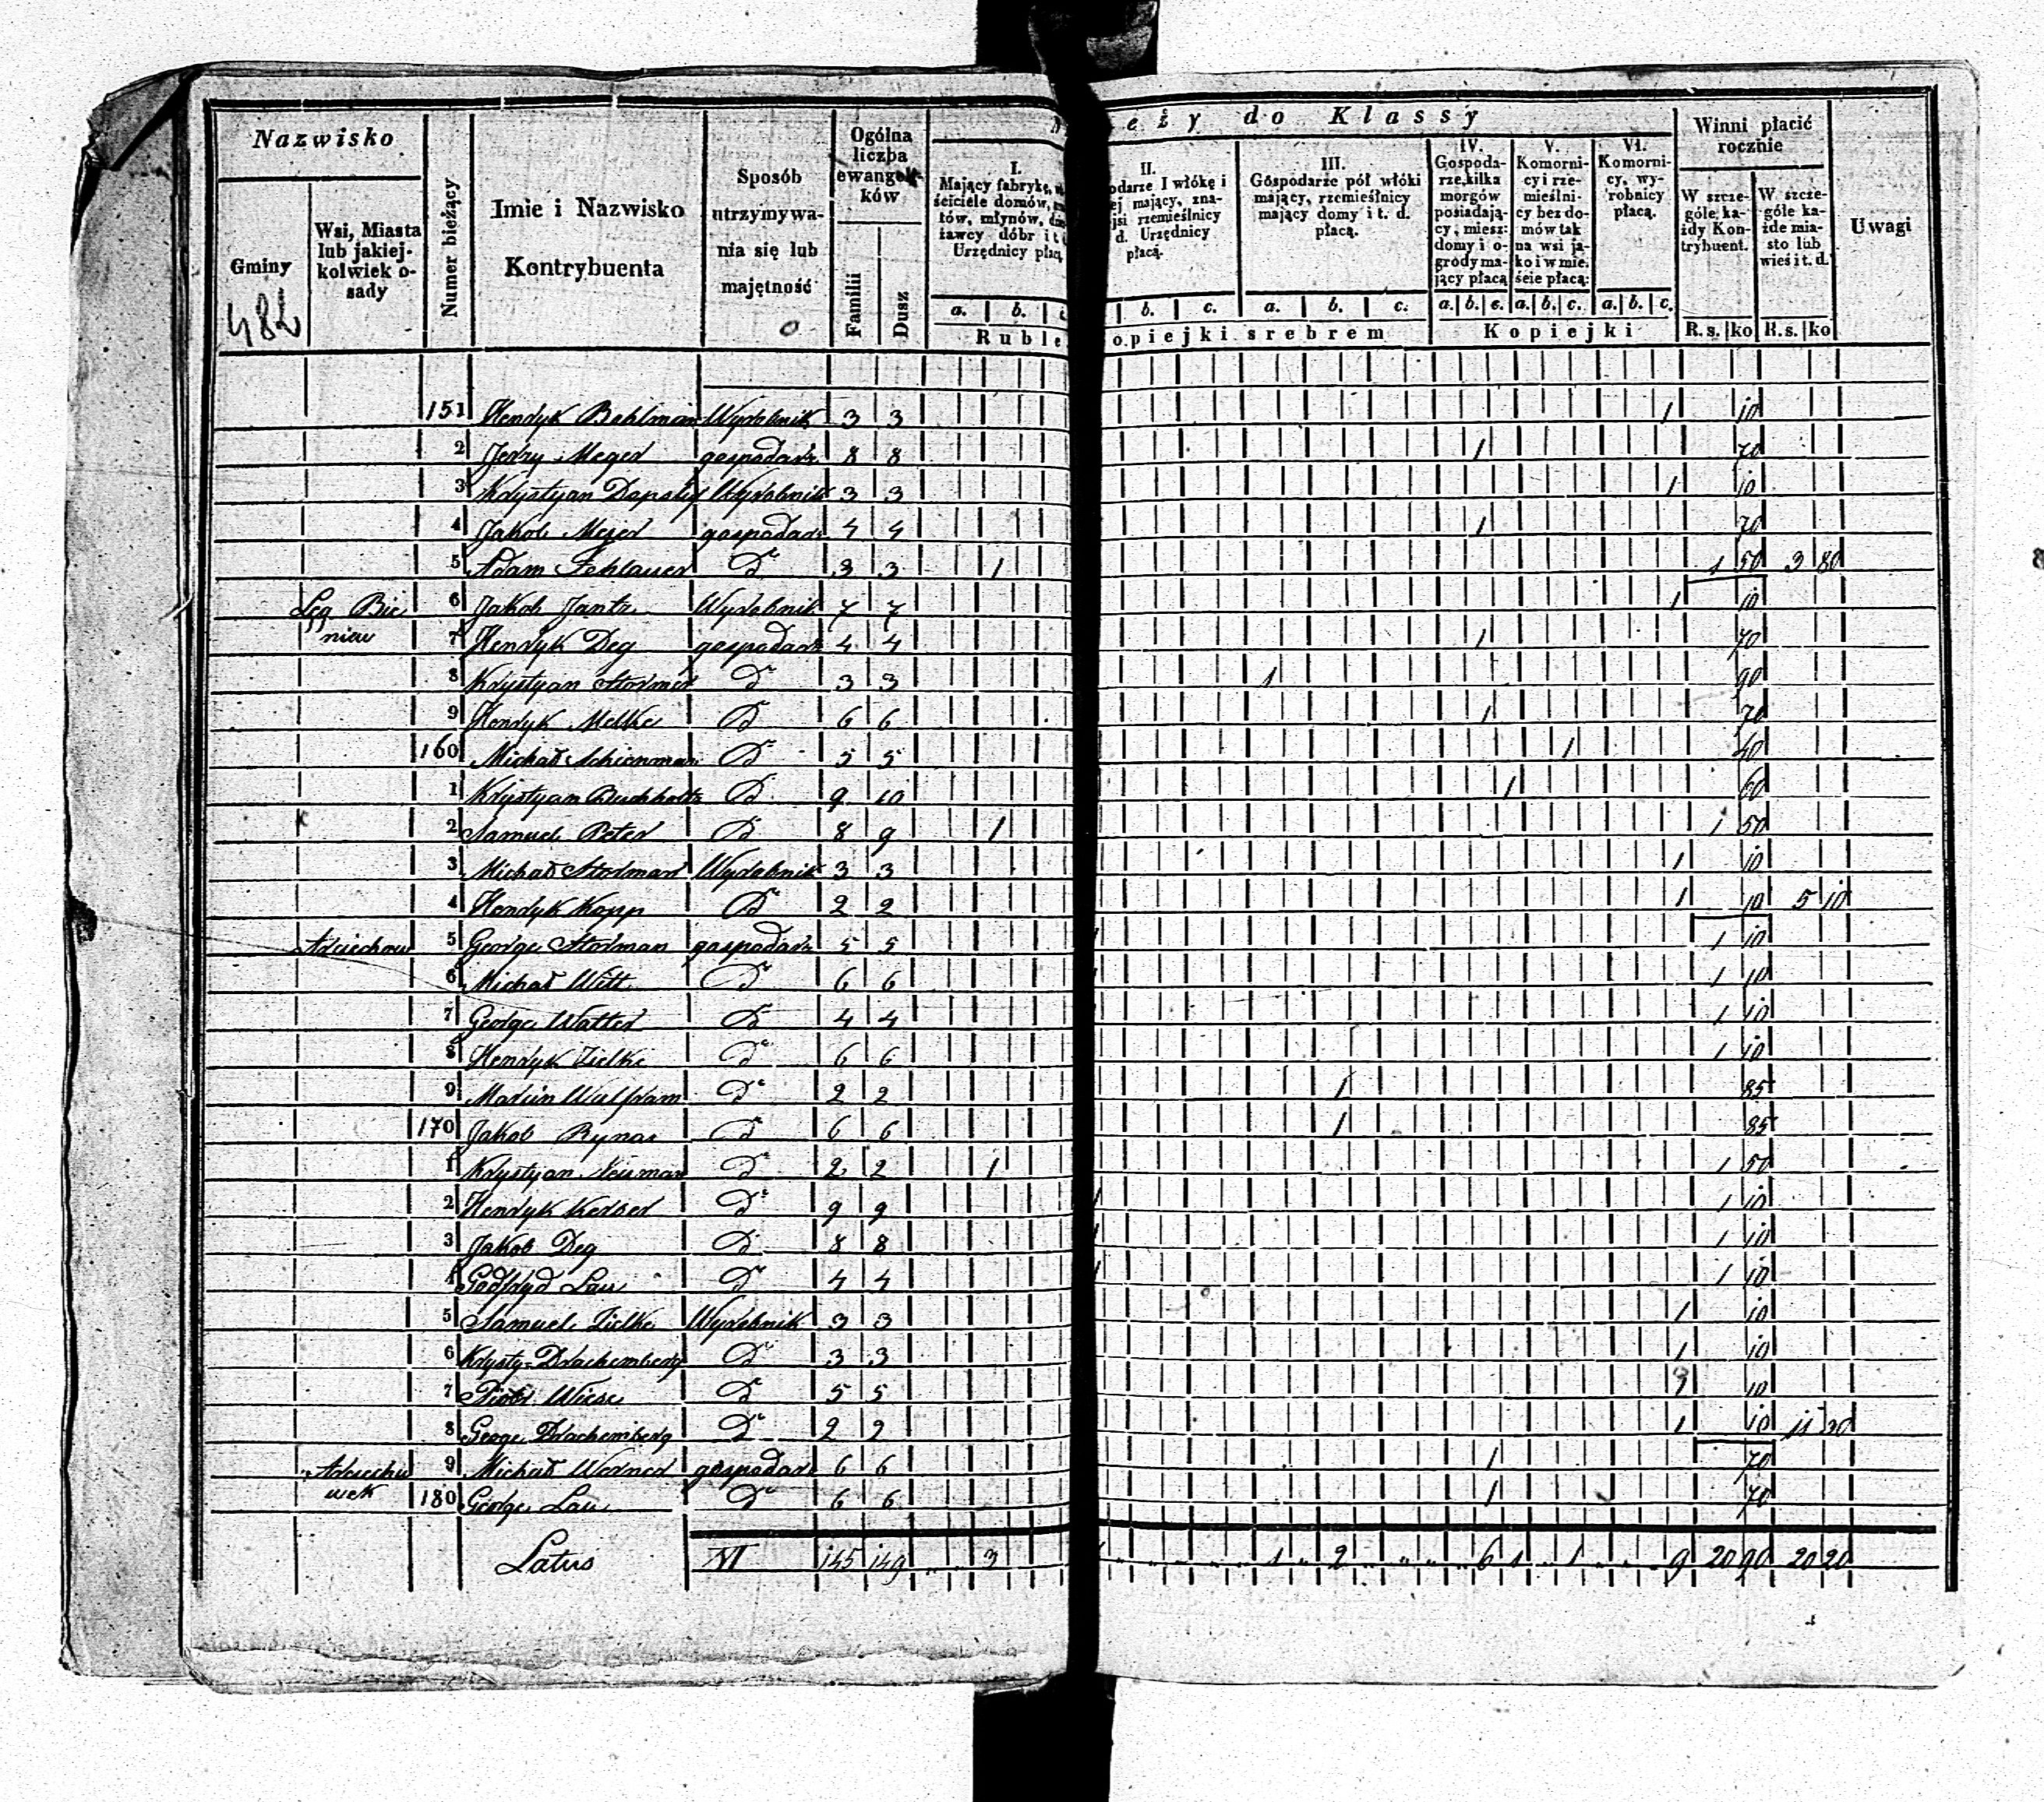 Nazwisko
Gminy
482
Wsi, Miasta
lub jakiej-
kolwiek o-
sady
Numer bieżący
Imie i Nazwisko
Kontrybuenta
Sposób
utrzymywa-
nia się lub
majętność
Ogólna
liczba
ewangelików
Familii
Dusz
do Klassy
I.
Mający fabrykę,
ściciele domów,
tów, młynów,
żawcy dóbr i t
Urzędnicy płacą
II.
odarze I włókę i
ej mający, zna-
jsi rzemieślnicy
d. Urzędnicy
płacą.
III.
Góspodarze pół włóki
mający, rzemieślnicy
mający domy i t. d.
płacą.
IV.
Gospoda-
rze, kilka
morgów
posiadają-
cy, miesz:
domy i o-
grody ma-
jący płacą
V.
Komorni-
cy i rze-
mieślni-
cy bez do-
mów tak
na wsi ja-
ko i w mie-
ście płacą:
VI.
Komorni-
cy, wy-
robnicy
płacą.
Winni płacić
rocznie
W szcze-
góle, ka-
żdy Kon-
trybuent.
W szcze-
góle ka-
żde mia-
sto lub
wieś i t. d.
Uwagi
a. b. b. c. a. b. c. a. b. c. a. b. c. a. b. c.
Ruble opiejki srebrem Kopiejki R.s. ko R.s. ko
151 Hendyk Wyrobnik 3 3 1 10
2 Jerzy Meger gospodarz 8 8 1 70
3 Krystyan Wyrobnik 3 3 1 10
4 Jakob Mejer gospodarz 4 4 1 70
5 Adam Fehlauer Dº 3 3 1 1 50 3 80
Łęg Bie 6 Jakob Jantz Wyrobnik 7 7 1 10
niew 7 Hendyk Deg gospodarz 4 4 1 70
8 Krystyan Dº 3 3 1 90
9 Hendyk Melke Dº 6 6 1 70
160 Michał Dº 5 5 1 40
1 Krystyan Buchholtz Dº 9 10 1 60
2 Samuel Peter Dº 8 9 1 1 50
3 Michał Wyrobnik 3 3 1 10
4 Hendyk Kopp Dº 2 2 1 10 5 10
5 George gospodarz 5 5 1 10
6 Michał Witt Dº 6 6 1 10
7 George Walter Dº 4 4 1 10
8 Hendyk Zielke Dº 6 6 1 10
9 Marcin Wulfram Dº 2 2 1 85
170 Jakob Rynas Dº 6 6 1 85
1 Krystyan Neuman Dº 2 2 1 1 50
2 Hendyk Kerber Dº 9 9 1 1 10
3 Jakob Deg Dº 8 8 1 1 10
4 Godfryd Lau Dº 4 4 1 1 10
5 Samuel Zielke Wyrobnik 3 3 1 10
6 Krysty= Drachemberg Dº 3 3 1 10
7 Piotr Wiese Dº 5 5 1 10
8 George Drachemberg Dº 2 2 1 10 11 30
9 Michał Werner gospodarz 6 6 1 70
wek 180 George Lau Dº 6 6 1 70
Latus VI 145 149 3 1 2 6 1 1 9 20 90 20 20